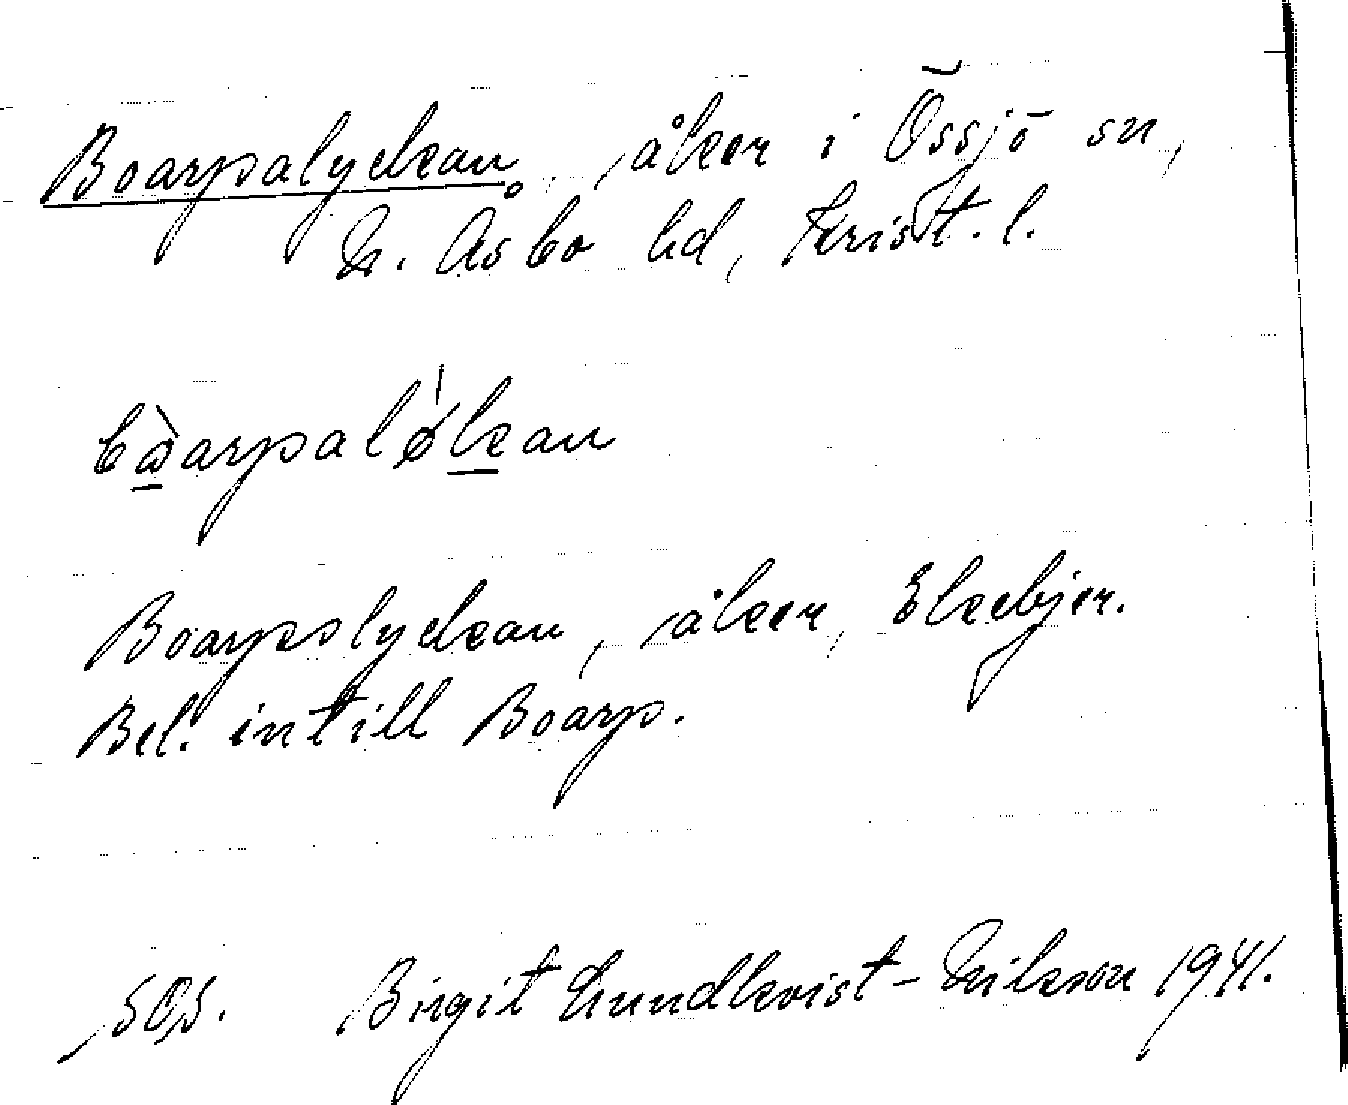 Boarpalyckan, åker i Össjö sn,
N. Åsbo hd, Krist. l.
bòarpaløkan
Boarpslyckan, åker, Ekebjer.
Bel. intill Boarp.
SOS. Birgit Lundkvist-Nilsson 1941.